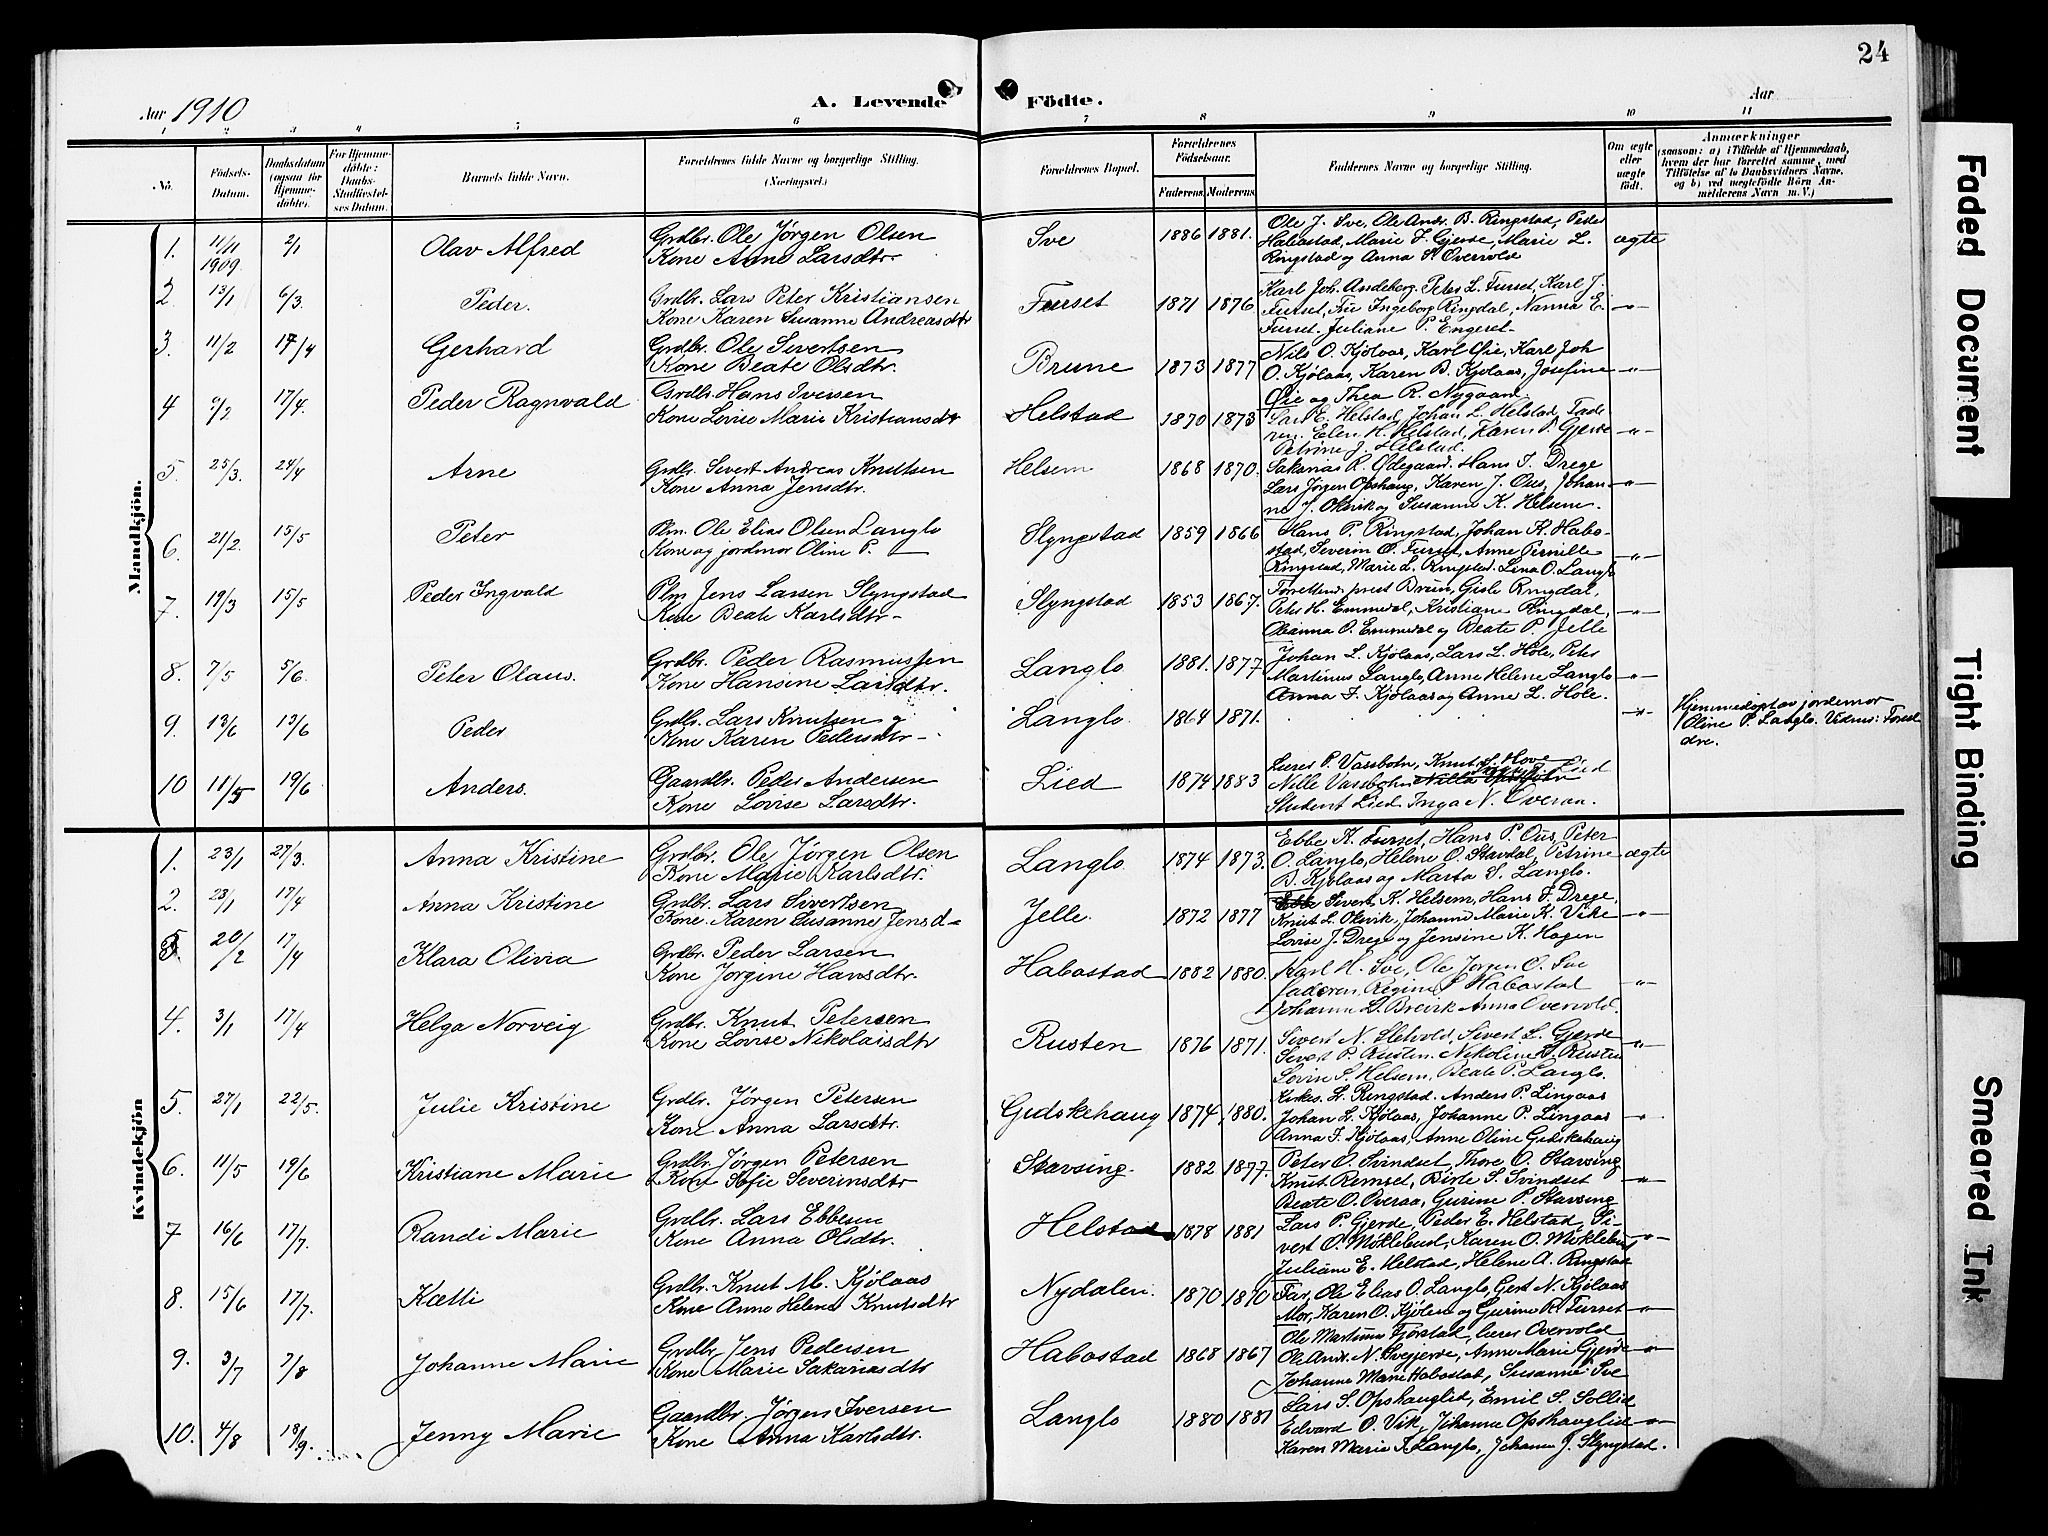 24
Aar 1910
A. Levende Födte.
Aar
1 2 3 4 5 6 7 8 9 10 11
No.
Födsels-Datum.
Daabsdatum (ogsaa for Hjemmedöbte).
For Hjemmedöbte: Daabs-Stadfæstelses Datum.
Barnets fulde Navn.
Forældrenes fulde Navne og borgerlige Stilling.
(Næringsvei.)
Forældrenes Bopæl.
Forældrenes Födselsaar.
Faderens.
Moderens.
Faddernes Navne og borgerlige Stilling.
Om ægte eller uægte födt.
Anmærkninger
(saasom: a) i Tilfælde af Hjemmedaab, hvem der har forrettet samme, med Tilföielse af to Daabsvidners Navne, og b) ved uægtefödte Börn Anmelderens Navn m. V.)
Mandkjön.
1. 11/11 1909 2/1 Olav Alfred Grdbr. Ole Jørgen Olsen Kone Anne Larsdtr. Sve 1886 1881. Ole J. Sve, Ole Andr. B. Ringstad, Peder Habostad, Marie F. Gjerde, Marie L. Ringstad og Anna S. Overvold ægte
2. 13/1 6/3 Peder. Grdbr. Lars Peter Kristiansen Kone Karen Susanne Andreasdtr Furset 1871 1876 Karl Joh. Andeberg. Peter L. Furset, Karl J. Furset, Fru Ingeborg Ringdal, Nanna E. Furset. Juliane P. Engeset. -"-
3. 11/2 17/4 Gerhard Grdbr. Ole Sivertsen Kone Beate Olsdtr. Brune 1873 1877 Nils O. Kjølaas, Karl Øie, Karl Joh O. Kjølaas, Karen B. Kjølaas, Josefine Øie og Thea R. Nygaard. -"-
4 /2 17/4. Peder Ragnvald Grdbr. Hans Iversen Kone Lovise Marie Kristiansdtr Helstad 1870 1873 E. Helstad, Johan L. Helstad, Faderen. Elen H. Helstad, Karen P. Gjerde Petrine J. Helstad. -"-
5. 25/3. 24/4 Arne Grdbr. Sivert Andreas Knutsen Kone Anna Jensdtr. Helsem 1868 1870. Sakarias R. Ødegaard. Hans J. Drege Lars Jørgen Opshaug, Karen J. Ous, Johanne J. Okvik og Susanne K. Helsem. -"-
6. 21/2. 15/5 Peter Plm. Ole Elias Olsen Langlo Kone og jordmor Oline P. — Slyngstad 1859 1866 Hans P. Ringstad, Johan K. Habostad, Severin O. Furset, Anne Pernille Ringstad, Marie L. Ringstad. Lina O. Langlo -"-
7. 19/3 15/5 Peder Ingvald Plm Jens Larsen Slyngstad Kone Beate Karlsdtr. Slyngstad 1853 1867. Forrettend. prest Bruun, Gisle Ringdal, Peter H. Emmedal, Kristiane Ringdal, O. Emmedal og Beate P. Jelle -"-
8. 7/5 5/6. Peter Olaus. Grdbr. Peder Rasmussen Kone Hansine Larsdtr. Langlo 1881. 1877 Johan L. Kjølaas, Lars L. Hole, Peter Martinus Langlo, Anne Helene Langlo Anna F. Kjølaas og Anne L. Hole. -"-
9 13/6 13/6 Peder Grdbr. Lars Knutsen og Kone Karen Pedersdtr. Langlo 1864 1871. -"- Hjemmedøpt av jordemor Oline P. Langlo. Vidner: Foreldre.
10 11/5 19/6 Anders. Gaardbr. Peder Andersen Kone Lovise Larsdtr. Lied 1874 1883 P. Vassbotn, Knut S. Hov Nille Vassbotn Lied Student Lied, Inga N. Overaa.
Kvindekjön
1. 23/1 27/3. Anna Kristine Grdbr. Ole Jørgen Olsen Kone Marie Karlsdtr. Langlo 1874 1873. Ebbe K. Furset, Hans P. Ous, Peter O. Langlo, Helene O. Stavdal, Petrine B. Kjølaas og Marta S. Langlo. ægte
2. 23/1 17/4 Anna Kristine Grdbr. Lars Sivertsen Kone. Karen Susanne Jensd- Jelle. 1872 1877 Sivert K. Helsem, Hans J. Drege, Knut L. Okvik, Johanne Marie K. Vike Lovise J. Drege og Jensine K. Hagen -"-
3 20/2 17/4 Klara Olivia Grdbr. Peder Larsen Kone Jørgine Hansdtr. Habostad 1882 1880. Karl H. Sve, Ole Jørgen O. Sve faderen, Regine P Habostad Johanne L. Breivik Anna Overvold. -"-
4. 3/1 17/4 Helga Norveig Grdbr. Knut Petersen Kone Lovise Nikolaisdtr Rusten 1876 1871. Sivert N. Sletvold, Sivert L. Gjerde Sivert P. Rusten. Nikoline Rusten Lovise S. Helsem, Beate P. Langlo. -"-
5. 27/1 22/5. Julie Kristine Grdbr. Jørgen Petersen Kone Anna Larsdtr. Gidskehaug 1874 1880. Kirkes. L. Ringstad. Anders P. Lingaas Johan L. Kjølaas, Johanne P. Lingaas Anna F. Kjølaas, Anne Oline Gidskehaug -"-
6. 11/5 19/6 Kristiane Marie Grdbr. Jørgen Petersen Kone Sofie Severinsdtr Stavsing. 1882 1877. Peter O. Svindset, Thore O. Stavsing Knut Remset, Birte S. Svindset Beate O. Overaa, Gurine P. Stavsing -"-
7 16/6 17/7. Randi Marie Grdbr. Lars Ebbesen Kone Anna Olsdtr. Helstad 1878 1881 Lars P. Gjerde, Peder E. Helstad, Sivert O. Møklebust, Karen O. Møklebust Juliane E. Helstad, Helene A. Ringstad -"-
8. 15/6 17/7. Katti Grdbr. Knut M. Kjølaas Kone Anne Helene Knutsdtr Nydalen. 1870 1870 Far, Ole Elias O. Langlo, Gert N. Kjølaas Mor, Karen O. Kjølaas og Gurine K. Furset -"-
9. 3/7 7/8 Johanne Marie Grdbr. Jens Pedersen Kone Marie Sakariasdtr Habostad 1868 1867 Ole Martinus Fjørstad, Overvold Ole Andr. N. Svegjerde, Anne Marie Gjerde Johanne Marie Habostad, Susanne Sve -"-
10. 4/8 18/9. Jenny Marie Gaardbr. Jørgen Iversen Kone Anna Karlsdtr. Langlo 1880 1881 Lars S. Opshauglid, Emil S. Sollid Edvard O. Vik, Johanne Opshauglid Karen Marie K Langlo, Johanne J. Slyngstad. -"-
Faded Document
Tight Binding
Smeared Ink